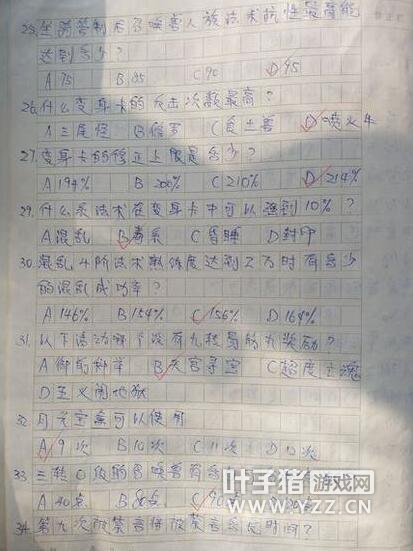 25.坐骑管制术召唤兽人族法术抗性最高能
达到多少?
A 75 B 85 C 90 D 95
26.什么变身卡的反击次数最高?
A 三尾怪 B 修罗 D 喷火牛
27.变身卡的修正上限是多少?
A 194% B 200% C 210% D 214%
29.什么系法术在变身卡中可以强到10%?
A 混乱 B 毒系 C 昏睡 D 封印
30.混乱4阶法术熟练度达到2万时有多少
的混乱成功率?
A 146% B 154% C 156% D 164%
31.以下活动哪个没有九转易筋丸奖励?
A B 天宫寻宝 C 超度亡魂
D 大闹地狱
32.月光宝盒可以使用
A 9次 B 10次 C 11次 D 12次
33.三转0级的召唤兽有
A 40点 B 80点 C 90点
34.第九次被禁言
叶子猪游戏网
YZZ.CN